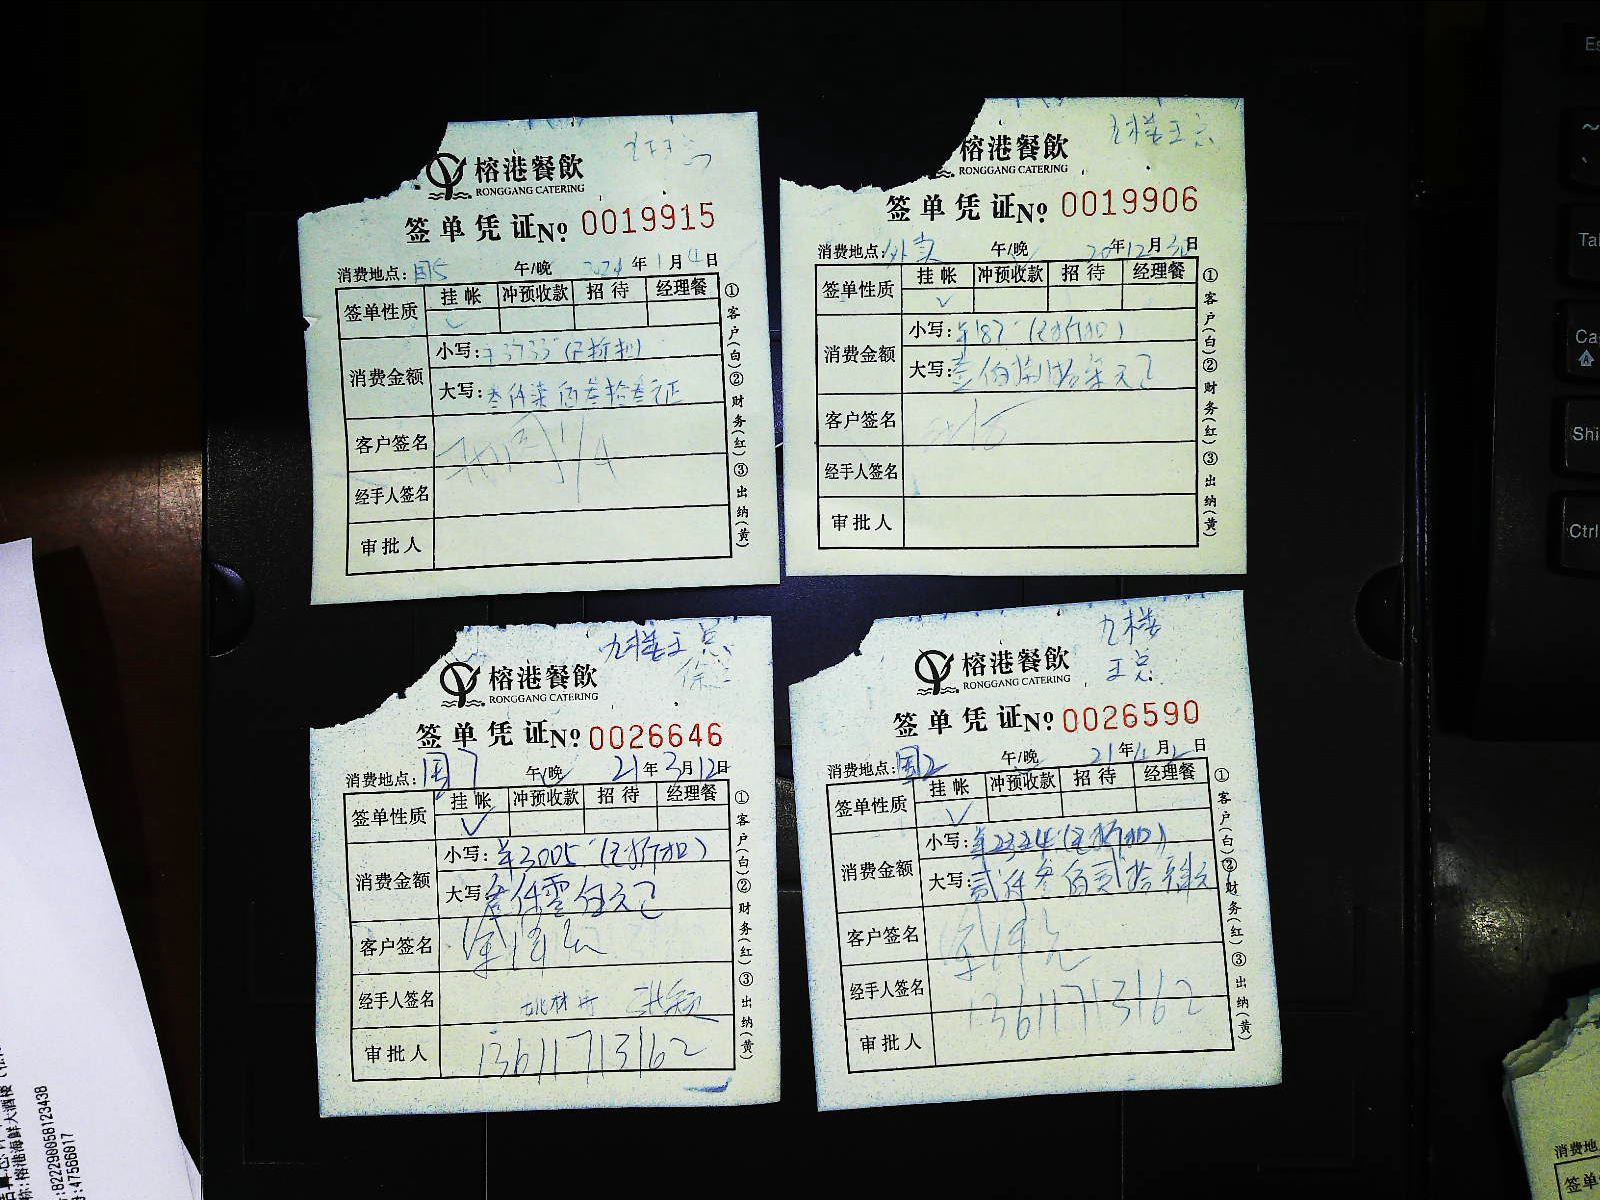 榕港餐飲
RONGGANG CATERING
签单凭证№ 0019915
消费地点: 国5 午/晚 2021年1月4日
签单性质 挂帐 冲预收款 招待 经理餐
消费金额
小写: ¥3733 (已折扣)
大写: 叁仟柒佰叁拾叁元正
客户签名
经手人签名
审批人
①客户(白)②财务(红)③出纳(黄)
王总
榕港餐飲
RONGGANG CATERING
签单凭证№ 0019906
消费地点: 外卖 午/晚 20年12月30日
签单性质 挂帐 冲预收款 招待 经理餐
消费金额
小写: ¥187 (已折扣)
大写: 壹佰捌拾柒元
客户签名
经手人签名
审批人
①客户(白)②财务(红)③出纳(黄)
九楼王总
徐
榕港餐飲
RONGGANG CATERING
签单凭证№ 0026646
消费地点: 国7 午/晚 21年3月12日
签单性质 挂帐 冲预收款 招待 经理餐
消费金额
小写: ¥3005 (已折扣)
大写: 叁仟零伍元
客户签名
经手人签名
审批人 13611713162
①客户(白)②财务(红)③出纳(黄)
九楼
王总
榕港餐飲
RONGGANG CATERING
签单凭证№ 0026590
消费地点: 国2 午/晚 21年 月 日
签单性质 挂帐 冲预收款 招待 经理餐
消费金额
小写: ¥2324 (已折扣)
大写: 贰仟叁佰贰拾肆元
客户签名
经手人签名 13611713162
审批人
①客户(白)②财务(红)③出纳(黄)
榕港海鲜大酒楼
:822290058123438
:47586017
消费地
签单
Es
Ta
Ca
Shi
Ctrl